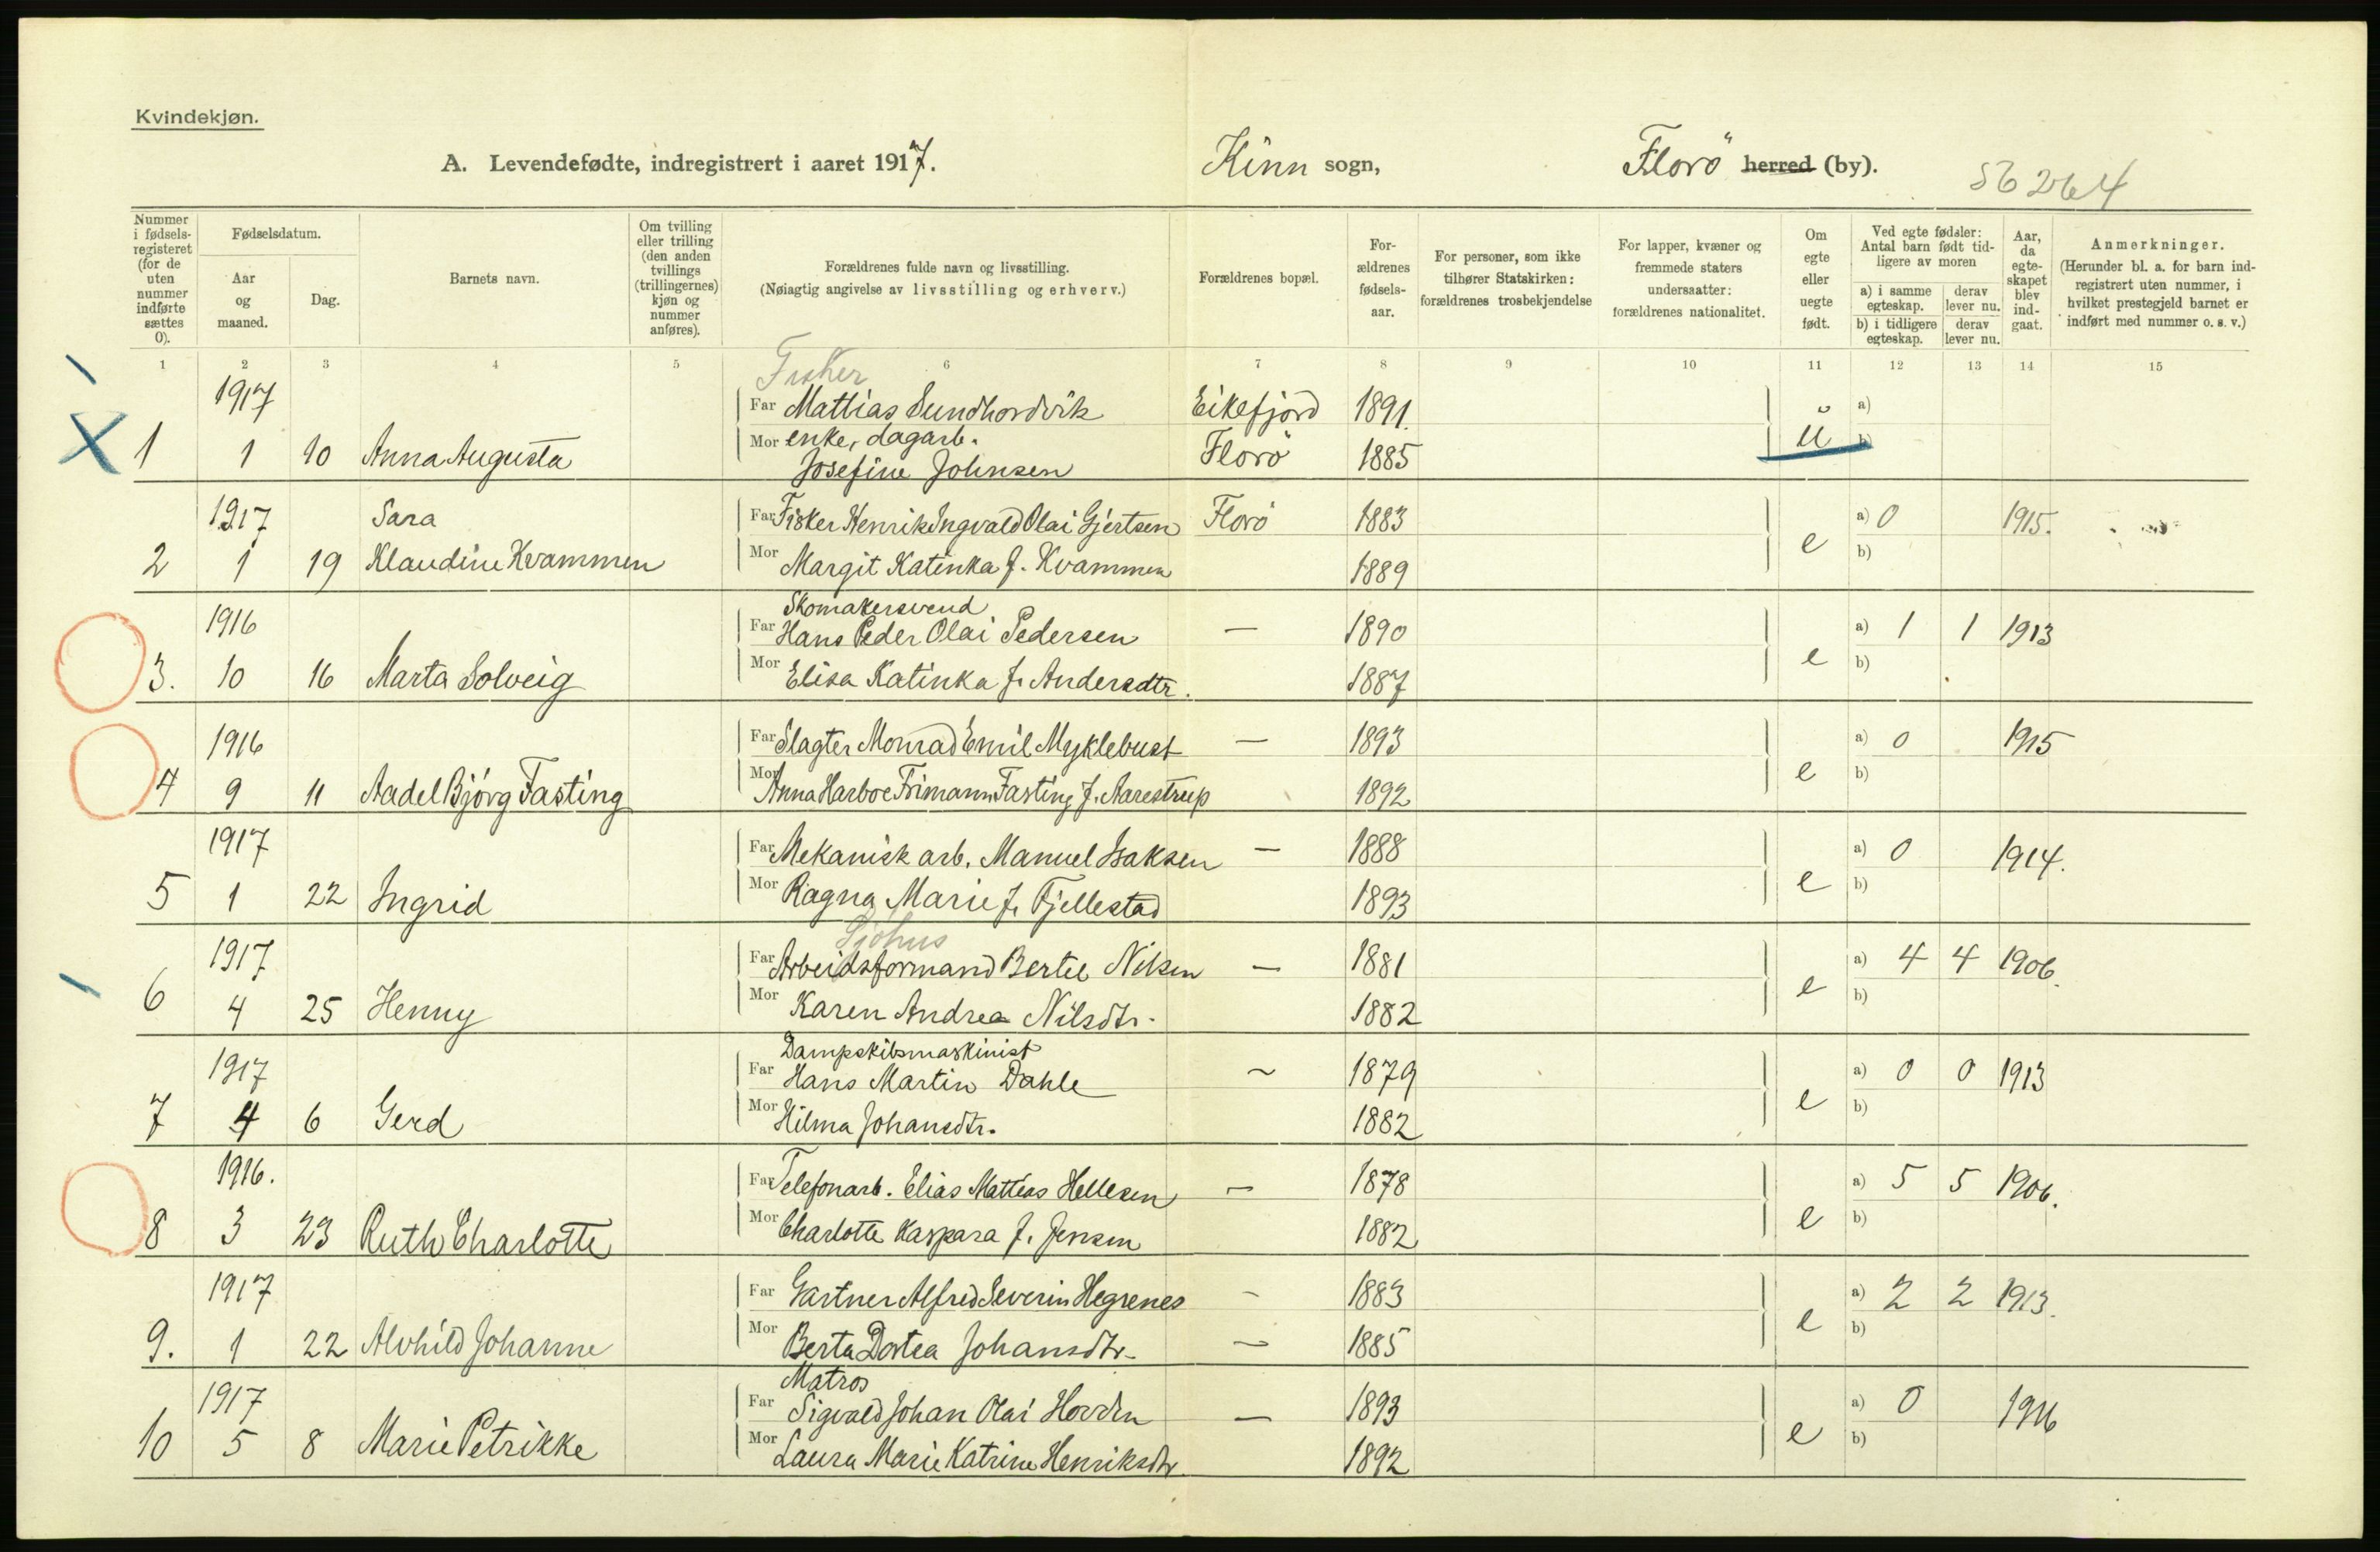 Kvindekjøn.
A. Levendefødte, indregistrert i aaret 1917. Kinn sogn, Florö herred (by). 56264
Nummer i fødsels-registeret (for de uten nummer indførte sættes 0).
Fødselsdatum.
Aar og maaned.
Dag.
Barnets navn.
Om tvilling eller trilling (den anden tvillings (trillingernes) kjøn og nummer anføres).
Forældrenes fulde navn og livsstilling.
(Nøiagtig angivelse av livsstilling og erhverv.)
Forældrenes bopæl.
For-ældrenes fødsels-aar.
For personer, som ikke tilhører Statskirken: forældrenes trosbekjendelse
For lapper, kvæner og fremmede staters undersaatter: forældrenes nationalitet.
Om egte eller uegte født.
Ved egte fødsler: Antal barn født tid-ligere av moren
a) i samme egteskap. derav lever nu.
b) i tidligere egteskap. derav lever nu.
Aar, da egte-skapet blev ind-gaat.
Anmerkninger.
(Herunder bl. a. for barn ind-registrert uten nummer, i hvilket prestegjeld barnet er indført med nummer o. s. v.)
1 2 3 4 5 6 7 8 9 10 11 12 13 14 15
Fisker
1917 Far Mattias Sundhordvik Eikefjord 1891. a)
Mor enke, dagarb. u b)
1 1 10 Anna Augusta Josefine Johnsen Florö 1885
1917 Sara Far Fisker Henrik Ingvald Olai Gjertsen Florö 1883 a) 0 1915.
2 1 19 Klaudine Kvammen Mor Margit Katinka f. Kvammen 1889 e b)
Skomakersvend
1916 Far Hans Peder Olai Pedersen — 1890 a) 1 1 1913
3. 10 16 Marta Solveig Mor Elisa Katinka f. Andersdtr. 1887 e b)
1916 Far Slagter Monrad Emil Myklebust — 1893 a) 0 1915
4 9 11 Aadel Bjórg Fasting Mor Anna Harboe Frimann Fasting f. Aarestrup 1892 e b)
1917 Far Mekanisk arb. Manuel Isaksen — 1888 a) 0 1914.
5 1 22 Ingrid Mor Ragna Marie f. Fjellestad 1893 e b)
Sjöhus
1917 Far Arbeidsformand Bertel Nilsen — 1881 a) 4 4 1906.
6 4 25 Henny Mor Karen Andrea Nilsdtr. 1882 e b)
Dampskibsmaskinist
1917 Far Hans Martin Dahle ~ 1879 a) 0 0 1913
7 4 6 Gerd Mor Hilma Johansdtr. 1882 e b)
1916. Far Telefonarb. Elias Mattias Hellesen — 1878 a) 5 5 1906.
8 3 23 Ruth Charlotte Mor Charlotte Kaspara f. Jensen 1882 e b)
1917 Far Gartner Alfred Severin Hegrenes - 1883 a) 2 2 1913.
9. 1 22 Alvhild Johanne Mor Berta Dortea Johansdtr. — 1885 e b)
Matros
1917 Far Sigvald Johan Olai Hovden — 1893 a) 0 1916
10 5 8 Marie Petrikke Mor Laura Marie Katrine Henriksdtr. 1892 e b)